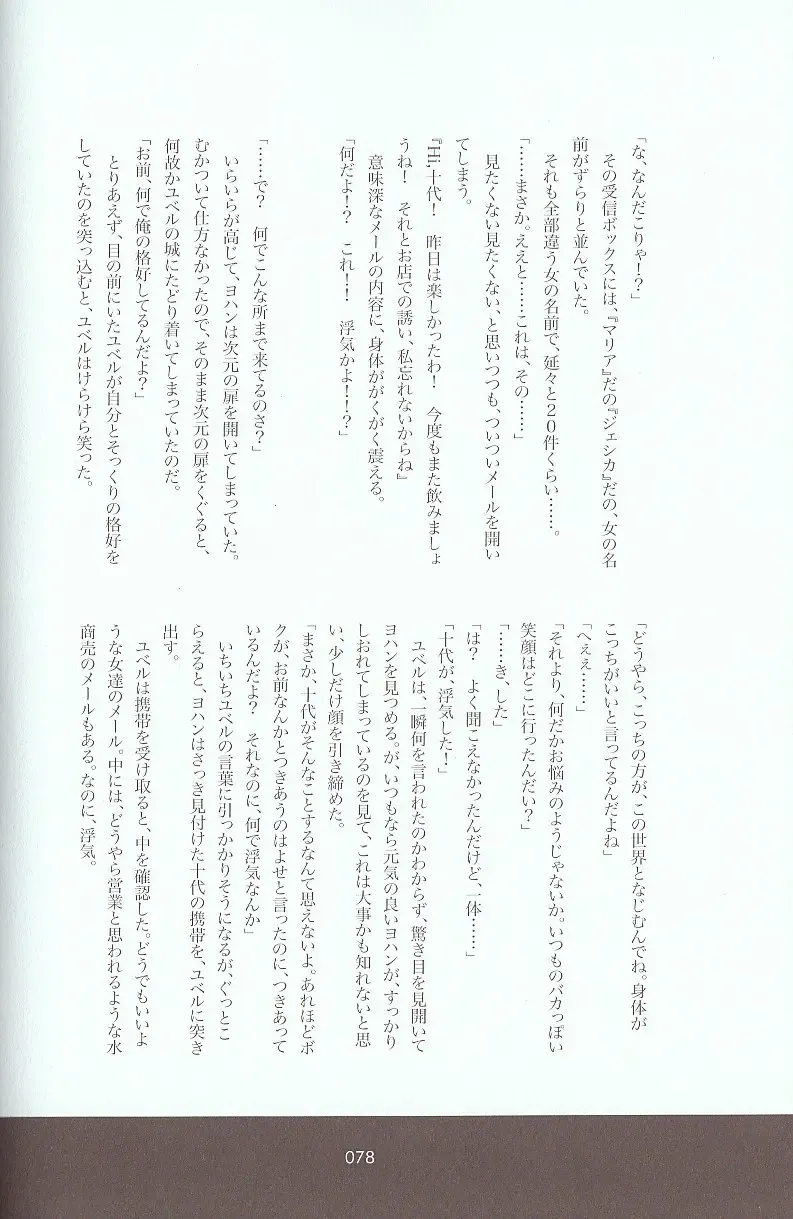 「な、なんだこりゃ!?」
　その受信ボックスには、『マリア』だの『ジェシカ』だの、女の名
前がずらりと並んでいた。
　それも全部違う女の名前で、延々と２０件くらい……。
「……まさか。ええと……これは、その……」
　見たくない見たくない、と思いつつも、ついついメールを開い
てしまう。
『Hi,十代！　昨日は楽しかったわ！　今度もまた飲みましょ
うね！　それとお店での誘い、私忘れないからね』
　意味深なメールの内容に、身体ががくがく震える。
「何だよ!?　これ！！　浮気かよ！！？」
「……で？　何でこんな所まで来てるのさ？」
　いらいらが高じて、ヨハンは次元の扉を開いてしまっていた。
むかついて仕方なかったので、そのまま次元の扉をくぐると、
何故かユベルの城にたどり着いてしまっていたのだ。
「お前、何で俺の格好してるんだよ？」
　とりあえず、目の前にいたユベルが自分とそっくりの格好を
していたのを突っ込むと、ユベルはけらけら笑った。
「どうやら、こっちの方が、この世界となじむんでね。身体が
こっちがいいと言ってるんだよね」
「へぇぇ……」
「それより、何だかお悩みのようじゃないか。いつものバカっぽい
笑顔はどこに行ったんだい？」
「……き、した」
「は？　よく聞こえなかったんだけど、一体……」
「十代が、浮気した！」
　ユベルは、一瞬何を言われたのかわからず、驚き目を見開いて
ヨハンを見つめる。が、いつもなら元気の良いヨハンが、すっかり
しおれてしまっているのを見て、これは大事かも知れないと思
い、少しだけ顔を引き締めた。
「まさか、十代がそんなことするなんて思えないよ。あれほどボ
クが、お前なんかとつきあうのはよせと言ったのに、つきあって
いるんだよ？　それなのに、何で浮気なんか」
　いちいちユベルの言葉に引っかかりそうになるが、ぐっとこ
らえると、ヨハンはさっき見付けた十代の携帯を、ユベルに突き
出す。
　ユベルは携帯を受け取ると、中を確認した。どうでもいいよ
うな女達のメール。中には、どうやら営業と思われるような水
商売のメールもある。なのに、浮気。
078